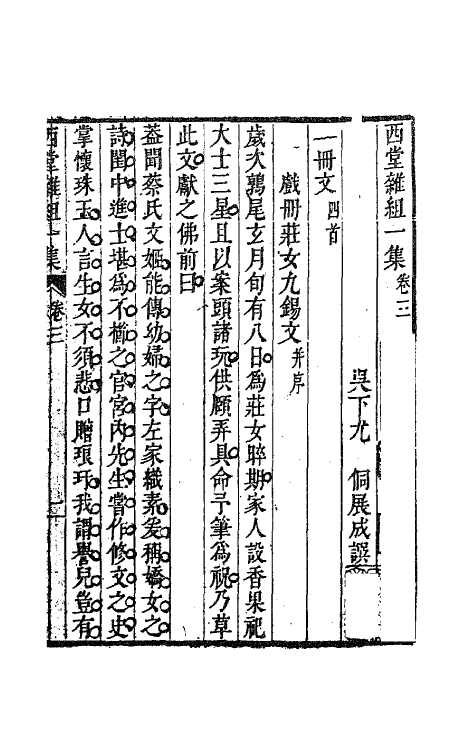 西堂雜組一集卷三
吳下尤 侗展成譔
一冊文四首
戲冊莊女九錫文并序
歲次鶉尾玄月旬有八日爲莊女晬期家人設香果祀
大士三星且以案頭諸玩供顧弄具命予筆爲祝乃草
此文獻之佛前曰
葢聞蔡氏文姬能傳幼婦之字左家織素爰稱嬌女之
詩閨中進士堪爲不櫛之官宮內先生嘗作修文之史
掌懷珠玉人言生女不須悲口贈琅玕我謂譽兒豈有
西堂雜組一集 卷三 一